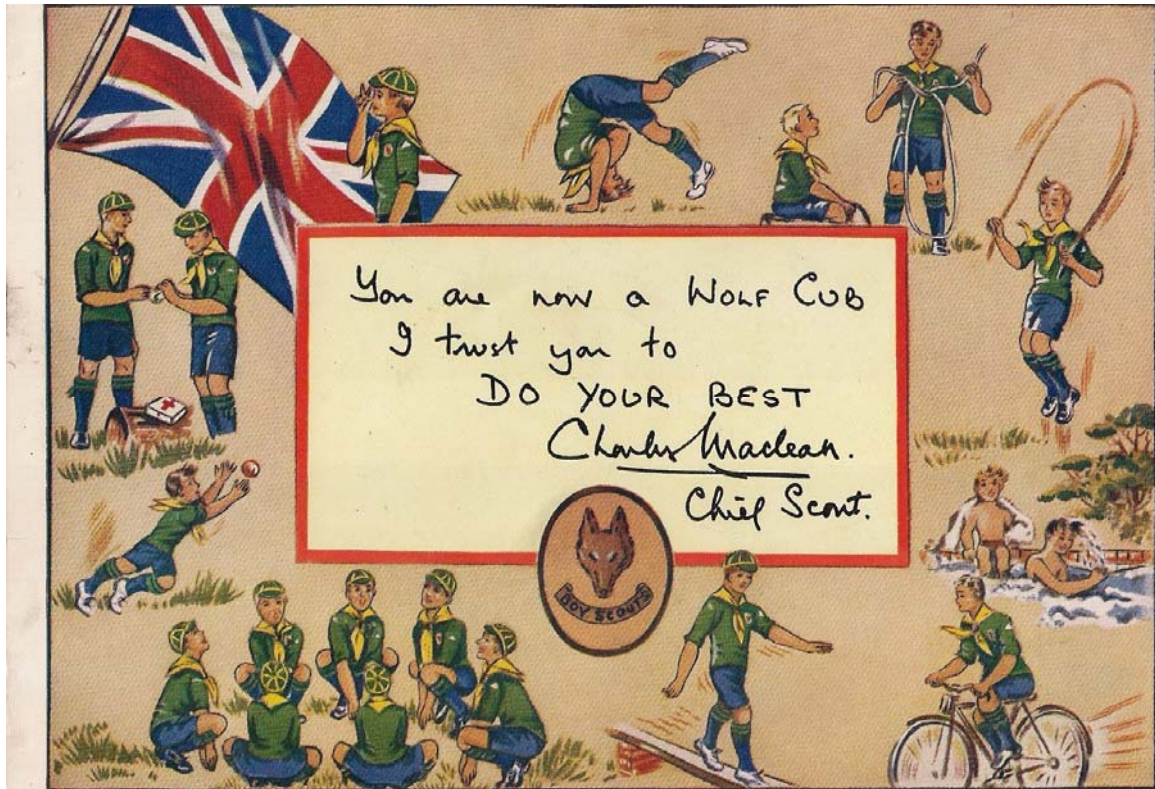 You are now a WOLF CUB
I trust you to
DO YOUR BEST
Charles Maclean.
Chief Scout.
BOY SCOUTS